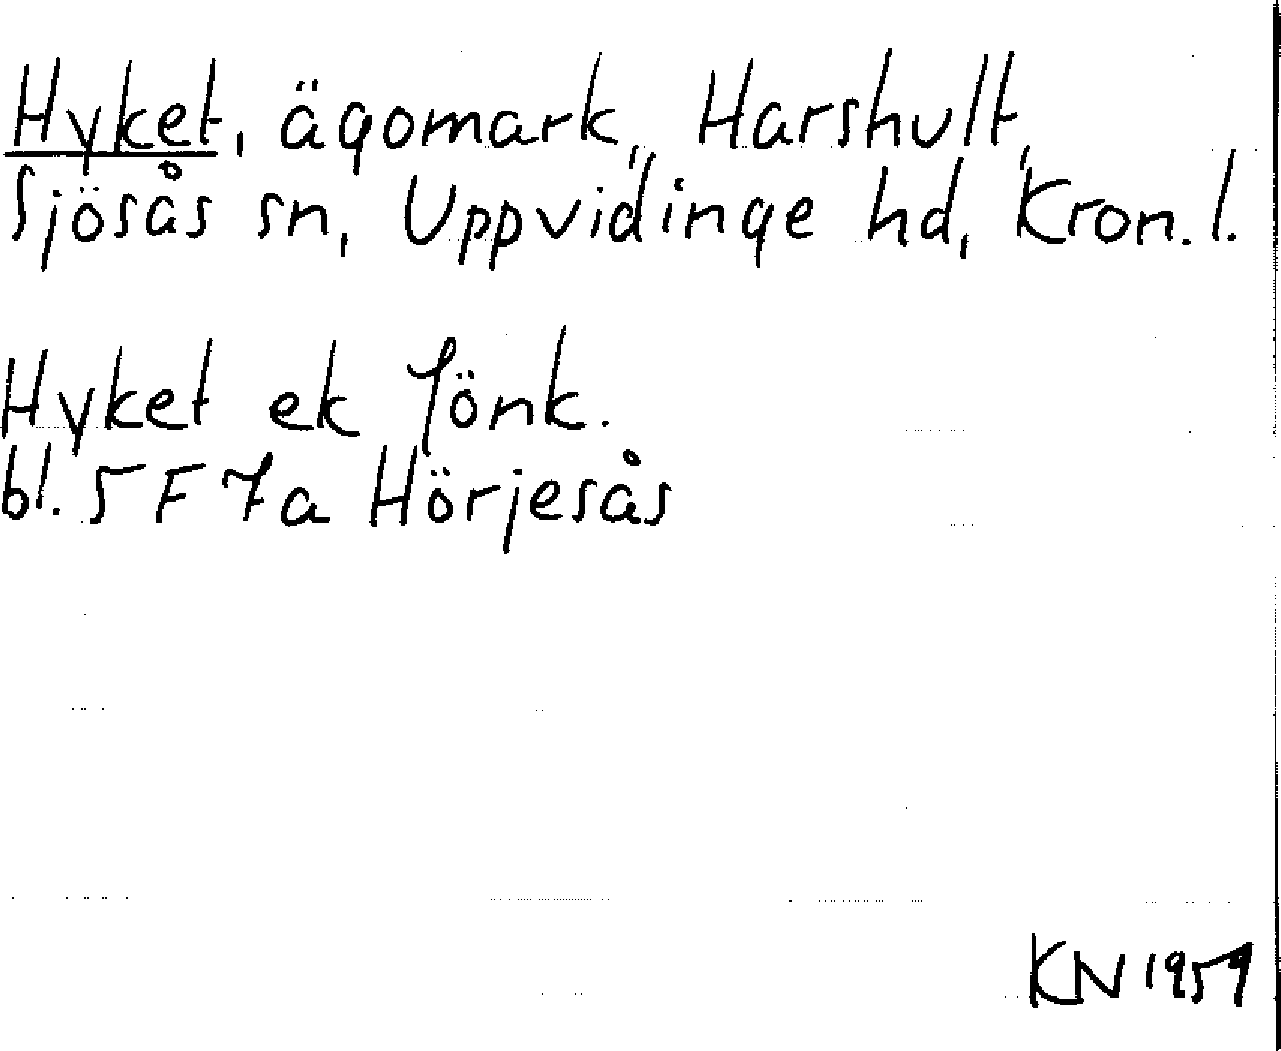 Hyket, ägomark, Harshult,
Sjösås sn, Uppvidinge hd, Kron. l.
Hyket ek Jönk.
bl. 5 F 7a Hörjesås
KN 1959